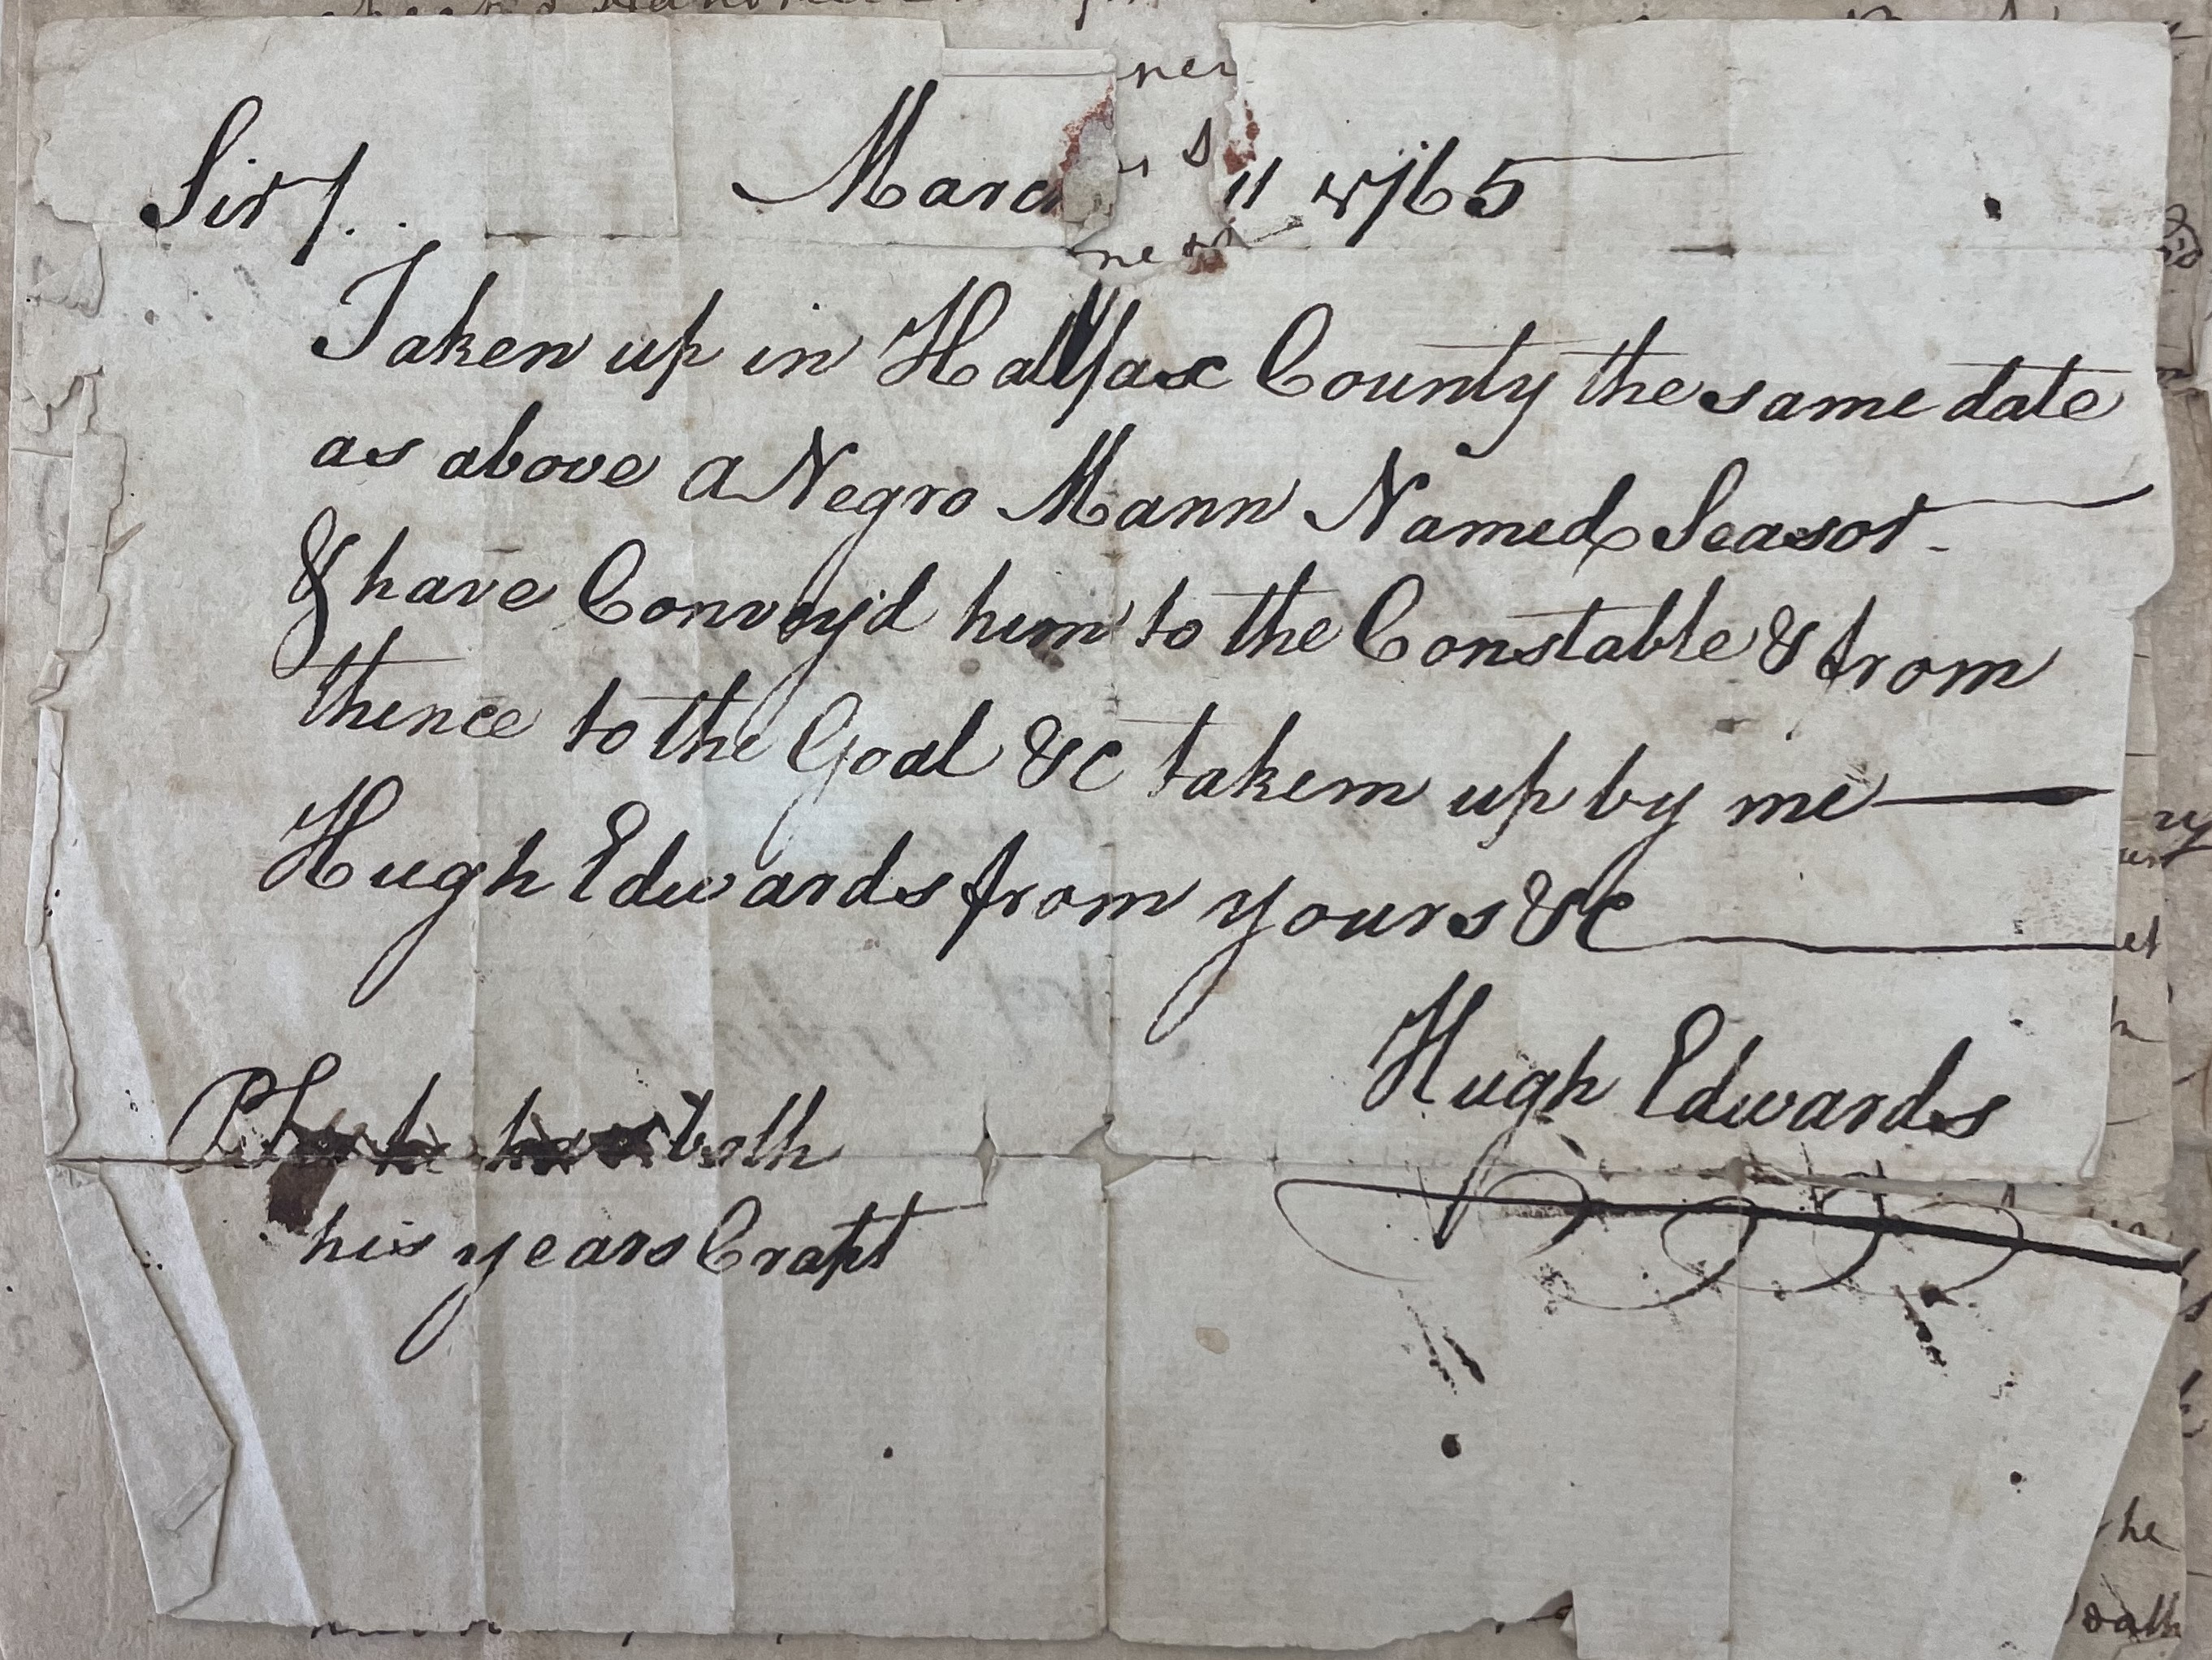 Sir /. March 11 1765
Taken up in Hallfax County the same date
as above a Negro Mann Named Seasor -
& have Convey'd him to the Constable & from
thence to the Goal &c takem up by me
Hugh Edwards from yours &c
Hugh Edwards
both
his years Crapt